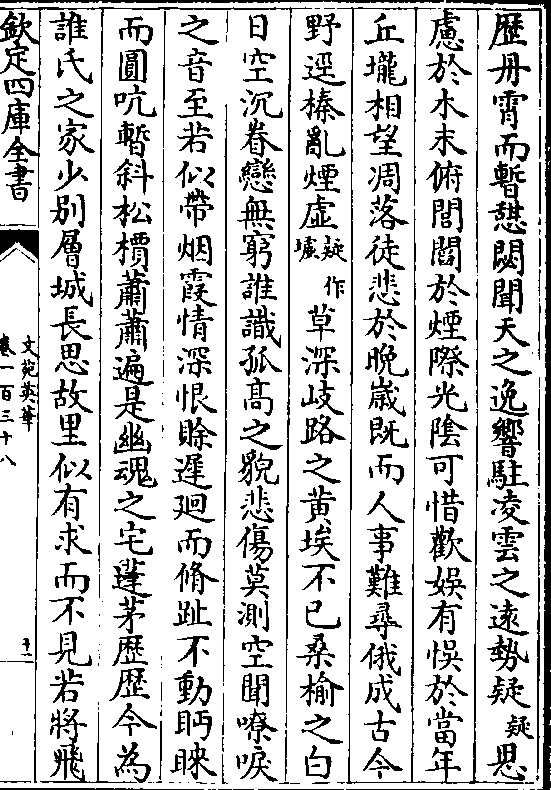 歴丹霄而暫憇閟聞天之逸響駐凌雲之遠勢疑疑思
慮於木末俯閭閻於煙際光陰可惜歡娛有悞於當年
丘壠相望凋落徒悲於晩嵗既而人事難尋俄成古今
野逕榛亂煙虛疑作墟草深岐路之黄埃不已桑榆之白
日空沉眷戀無窮誰識孤髙之貌悲傷莫測空聞嘹唳
之音至若似帶烟霞情深恨賒遲廻而脩趾不動眄睞
而圓吭暫斜松檟蕭蕭遍是幽魂之宅蓬茅歴歴今為
誰氏之家少别層城長思故里似有求而不見若將飛
欽定四庫全書
文苑英華
卷一百三十八
十二